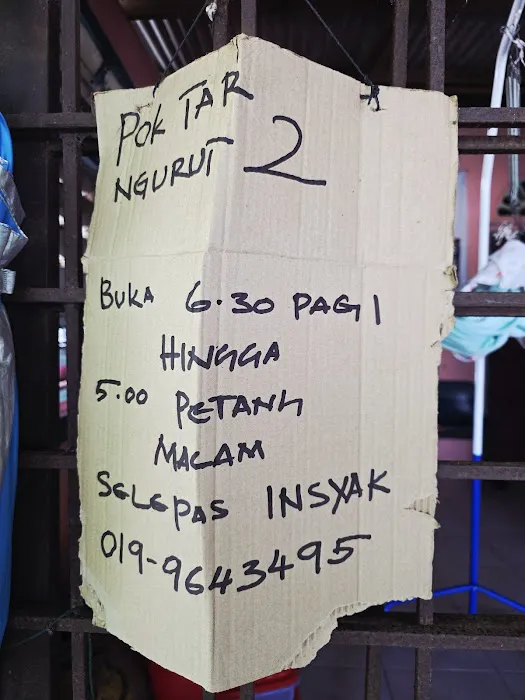 POK TAR
NGURUT 2
BUKA 6.30 PAGI
HINGGA
5.00 PETANG
MALAM
SELEPAS INSYAK
019-9643495